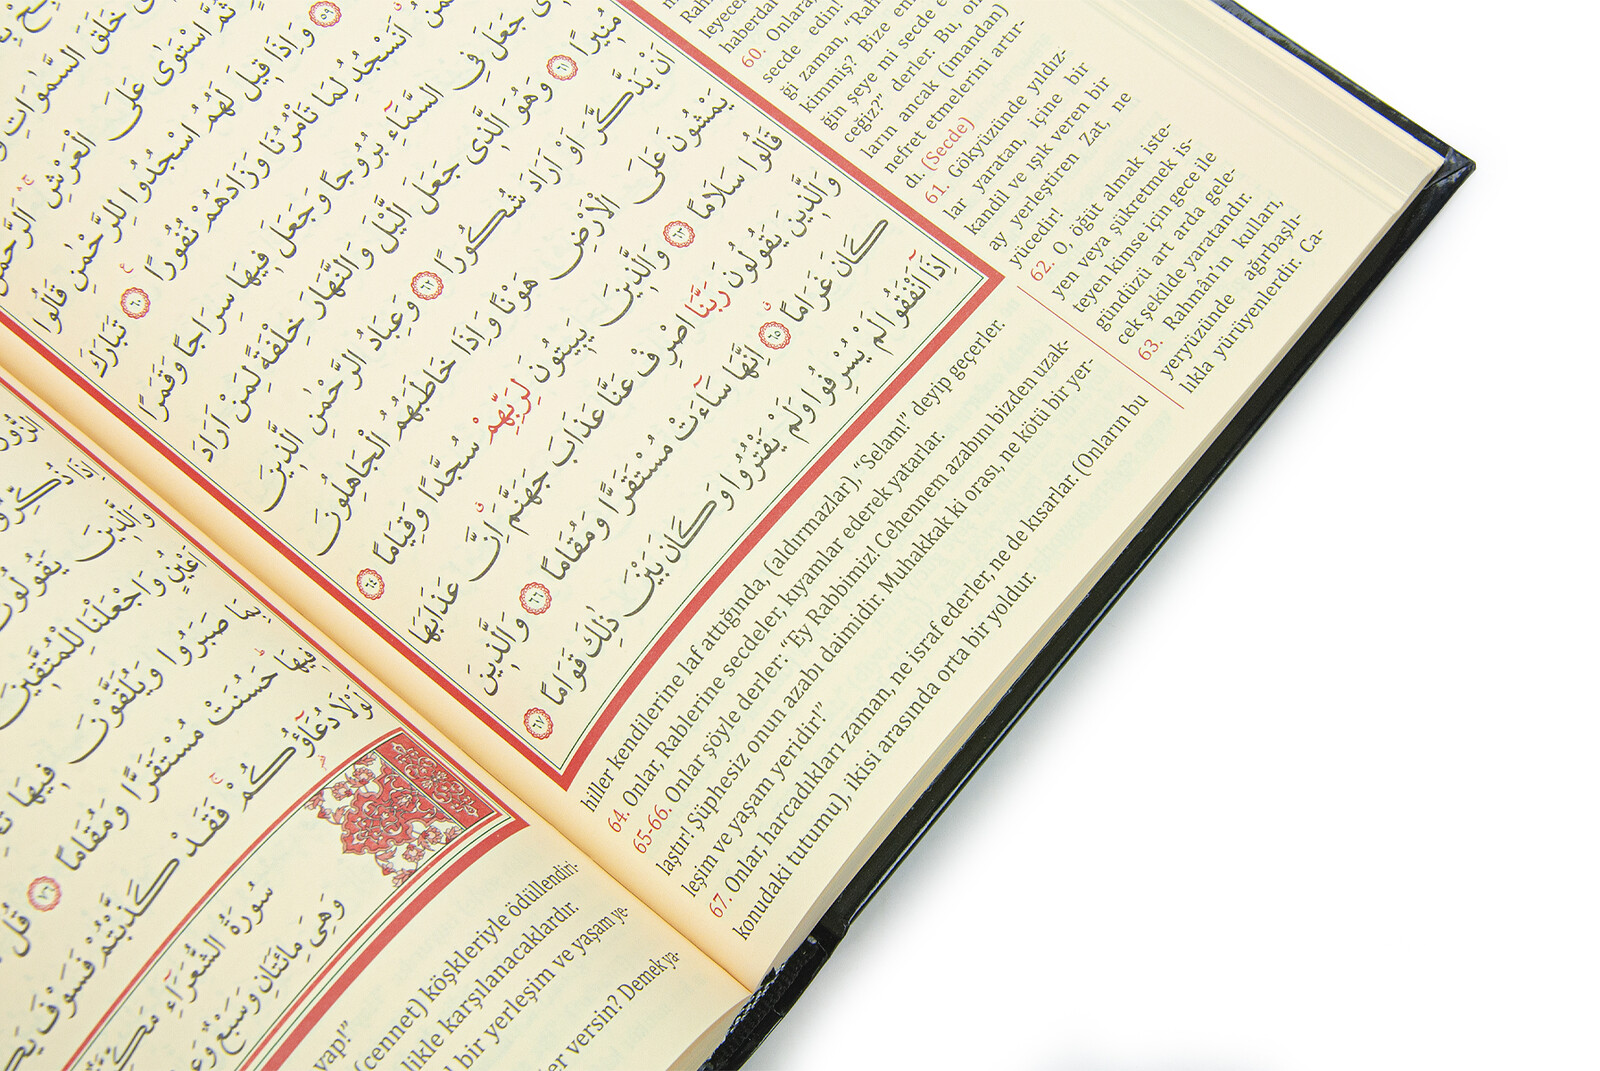 خَلَقَ السَّمٰوَاتِ
ثُمَّ اسْتَوٰى عَلَى الْعَرْشِ اَلرَّحْمٰنُ
٥٩ وَاِذَا قٖيلَ لَهُمُ اسْجُدُوا لِلرَّحْمٰنِ قَالُوا
اَنَسْجُدُ لِمَا تَأْمُرُنَا وَزَادَهُمْ نُفُورًا ٦٠ تَبَارَكَ
جَعَلَ فِي السَّمَٓاءِ بُرُوجًا وَجَعَلَ فٖيهَا سِرَاجًا وَقَمَرًا
مُنٖيرًا ٦١ وَهُوَ الَّذٖى جَعَلَ الَّيْلَ وَالنَّهَارَ خِلْفَةً لِمَنْ اَرَادَ
اَنْ يَذَّكَّرَ اَوْ اَرَادَ شُكُورًا ٦٢ وَعِبَادُ الرَّحْمٰنِ الَّذٖينَ
يَمْشُونَ عَلَى الْاَرْضِ هَوْنًا وَاِذَا خَاطَبَهُمُ الْجَاهِلُونَ
قَالُوا سَلَامًا ٦٣ وَالَّذٖينَ يَبٖيتُونَ لِرَبِّهِمْ سُجَّدًا وَقِيَامًا ٦٤
وَالَّذٖينَ يَقُولُونَ رَبَّنَا اصْرِفْ عَنَّا عَذَابَ جَهَنَّمَ اِنَّ عَذَابَهَا
كَانَ غَرَامًا ٦٥ اِنَّهَا سَٓاءَتْ مُسْتَقَرًّا وَمُقَامًا ٦٦ وَالَّذٖينَ
اِذَٓا اَنْفَقُوا لَمْ يُسْرِفُوا وَلَمْ يَقْتُرُوا وَكَانَ بَيْنَ ذٰلِكَ قَوَامًا ٦٧
leyece
haberdar
60. Onlara,
secde edin!
ği zaman, "Rah
kimmiş? Bize en
ğin şeye mi secde e
ceğiz?" derler. Bu, on
ların ancak (imandan)
nefret etmelerini artır-
dı. (Secde)
61. Gökyüzünde yıldız-
lar yaratan, içine bir
kandil ve ışık veren bir
ay yerleştiren Zat, ne
yücedir!
62. O, öğüt almak iste-
yen veya şükretmek is-
teyen kimse için gece ile
gündüzü art arda gele-
cek şekilde yaratandır.
63. Rahmân'ın kulları,
yeryüzünde ağırbaşlı-
lıkla yürüyenlerdir. Ca-
hiller kendilerine laf attığında, (aldırmazlar), "Selam!" deyip geçerler.
64. Onlar, Rablerine secdeler, kıyamlar ederek yatarlar.
65-66. Onlar şöyle derler: "Ey Rabbimiz! Cehennem azabını bizden uzak-
laştır! Şüphesiz onun azabı daimidir. Muhakkak ki orası, ne kötü bir yer-
leşim ve yaşam yeridir!"
67. Onlar, harcadıkları zaman, ne israf ederler, ne de kısarlar. (Onların bu
konudaki tutumu), ikisi arasında orta bir yoldur.
وَالَّذٖينَ يَقُولُونَ
اَعْيُنٍ وَاجْعَلْنَا لِلْمُتَّقٖينَ
بِمَا صَبَرُوا وَيُلَقَّوْنَ فٖيهَا
فٖيهَا حَسُنَتْ مُسْتَقَرًّا وَمُقَامًا ٧٦ قُلْ
لَوْلَا دُعَٓاؤُكُمْ فَقَدْ كَذَّبْتُمْ فَسَوْفَ
سُورَةُ الشُّعَرَٓاءِ
وَهِيَ مِائَتَانِ وَسَبْعٌ
yap!"
(cennet) köşkleriyle ödüllendiri-
likle karşılanacaklardır.
bir yerleşim ve yaşam ye-
er versin? Demek ya-